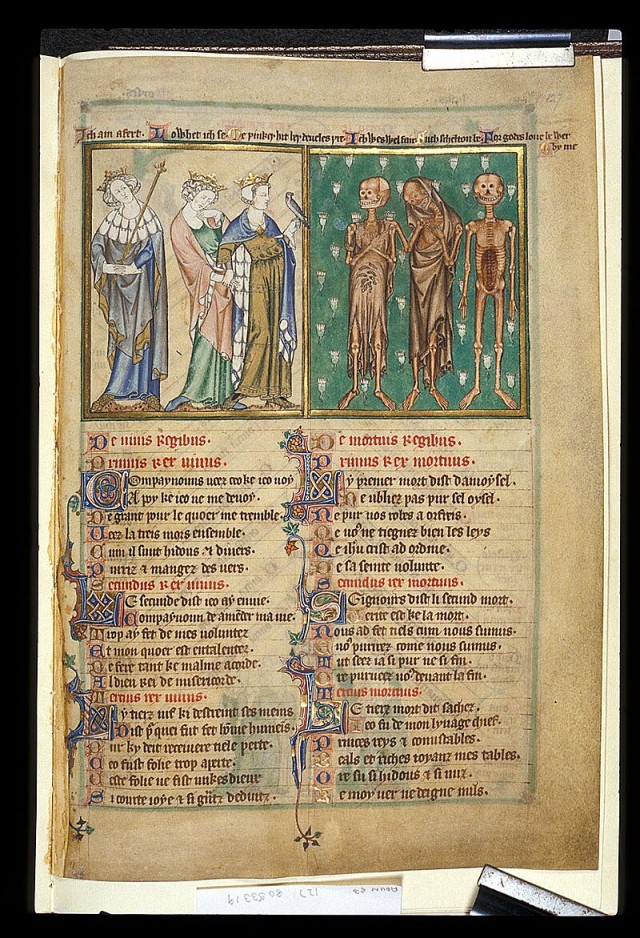 Ich am afert. Lo whet ich se. Me þinkeþ hit bey deueles þre. Ich wes wel fair. Such scheltou be. For godes loue be wer
by me
127
De uiuis regibus.
Primus rex uiuus.
Compaynouns ueez ceo ke ieo uoy
A poy ke ieo ne me deuoy.
De grant pour le quoer me tremble.
Veez la treis mors ensemble.
Cum il sunt hidous & diuers.
Purriz & mangez des uers.
Secundus rex uiuus.
Le secunde dist ieo ay enuie.
Compaynoun de amēder ma uie.
Trop ay fet de mes uolunter
Et mon quoer est entalenter.
De fere tant ke malme acorde.
Al dieu rei de misericorde.
Tertius rex uiuus.
Ly tierz uif ki destreint ses meins
Dist p̄ quei fut fet home
Pur ky deit receiuere tiele perte.
Ceo fust folie trop aperte.
Ceste folie ne fist unkes dieux
Si courte ioye & si deduiz.
De mortuis regibus.
Primus rex mortuus.
Ly premer mort dist damoysel.
Ne ubliez pas pur sel oysel.
Ne pur uos robes a orfreis.
Qe uoꝰ ne tiegnez bien les leys
Qe ihu crist ad ordine.
De sa seinte uolunte.
Secundus rex mortuus.
Seignours dist li secund mort.
Verite est ke la mort.
Nous ad fet tiels cum nous sumus.
Et uoꝰ purrirez come nous sumus.
Tut seez ia si pur ne si fin.
Ore purueez uoꝰ deuant la fin.
Tertius mortuus.
Le tierz mort dit sachez.
Ieo fu de mon lynage chief.
Princes reys & conustables.
Beals et riches ioyanz mes tables.
Ore su si hidous & si nuz.
Ke moy uer ne deigne nuls.